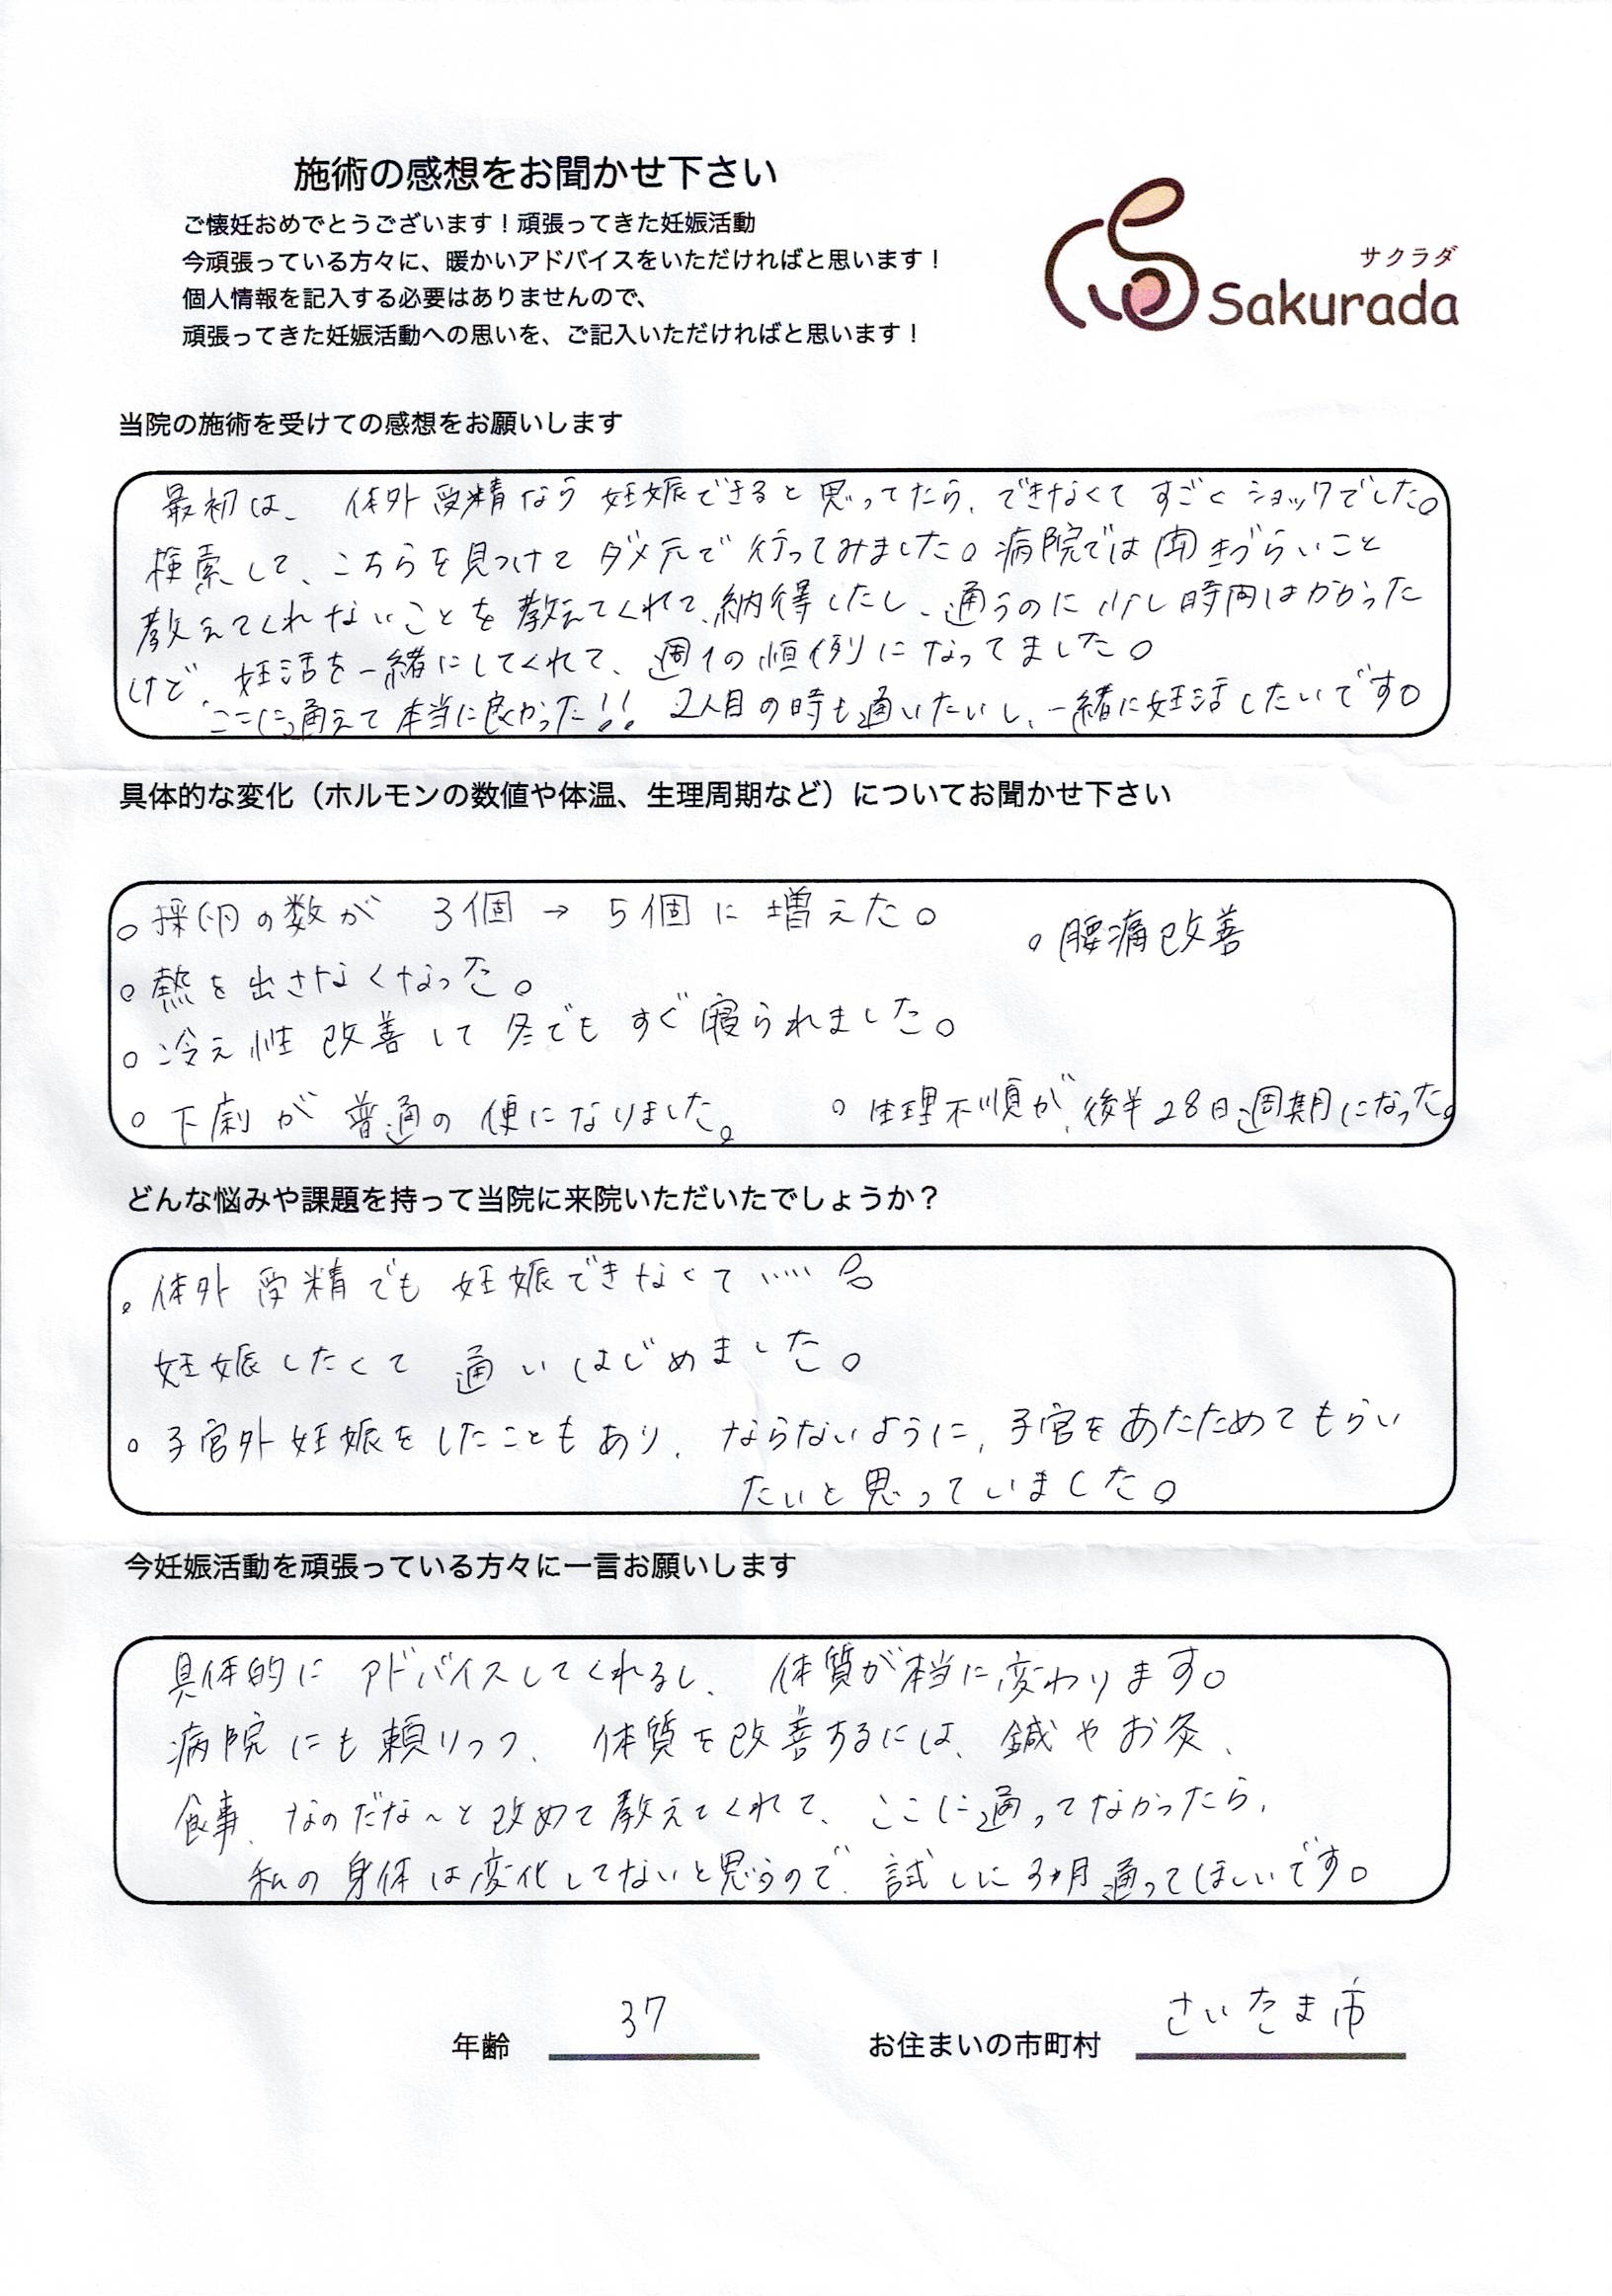 施術の感想をお聞かせ下さい
ご懐妊おめでとうございます！頑張ってきた妊娠活動
今頑張っている方々に、暖かいアドバイスをいただければと思います！
個人情報を記入する必要はありませんので、
頑張ってきた妊娠活動への思いを、ご記入いただければと思います！
サクラダ
Sakurada
当院の施術を受けての感想をお願いします
最初は、体外受精なら妊娠できると思ってたら、できなくてすごくショックでした。
検索して、こちらを見つけてダメ元で行ってみました。病院では聞きづらいこと
教えてくれないことを教えてくれて、納得したし、通うのに少し時間はかかった
けど、妊活を一緒にしてくれて、週1の恒例になってました。
ここに通えて本当に良かった!! 2人目の時も通いたいし、一緒に妊活したいです。
具体的な変化（ホルモンの数値や体温、生理周期など）についてお聞かせ下さい
○採卵の数が 3個→5個に増えた。
○腰痛改善
○熱を出さなくなった。
○冷え性改善して冬でもすぐ寝られました。
○下痢が普通の便になりました。
○生理不順が、後半28日周期になった。
どんな悩みや課題を持って当院に来院いただいたでしょうか？
○体外受精でも妊娠できなくて……。
妊娠したくて通いはじめました。
○子宮外妊娠をしたこともあり、ならないように、子宮をあたためてもらい
たいと思っていました。
今妊娠活動を頑張っている方々に一言お願いします
具体的にアドバイスしてくれるし、体質が本当に変わります。
病院にも頼りつつ、体質を改善するには、鍼やお灸、
食事、なのだな〜と改めて教えてくれて、ここに通ってなかったら、
私の身体は変化してないと思うので、試しに3ヶ月通ってほしいです。
年齢 37
お住まいの市町村 さいたま市